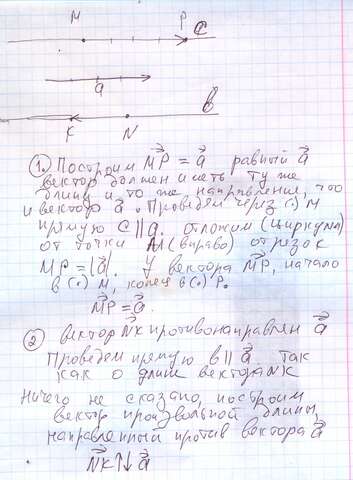 M P C
a
K N в
① Построим MP = a равный a
вектор должен иметь ту же
длину и то же направление, что
и вектор a. Проведём через (·) M
прямую C || a. отложим (циркулем)
от точки M (вправо) отрезок
MP = |a|. У вектора MP, начало
в (·) M, конец в (·) P.
MP = a.
② вектор NK противонаправлен a
Проведём прямую в || a. Так
как о длине вектора NK
ничего не сказано, построим
вектор произвольной длины,
направленный против вектора a
NK ↑↓ a